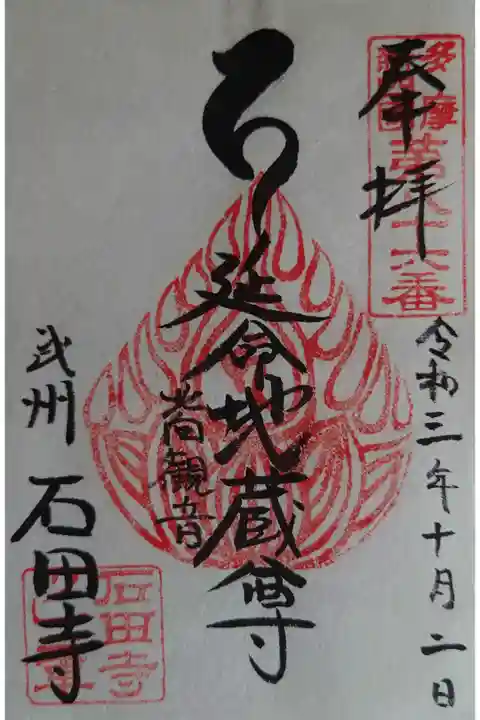 奉拝
多摩
第八十六番
令和三年十月二日
延命地蔵尊
観音
武州
石田寺
石田寺